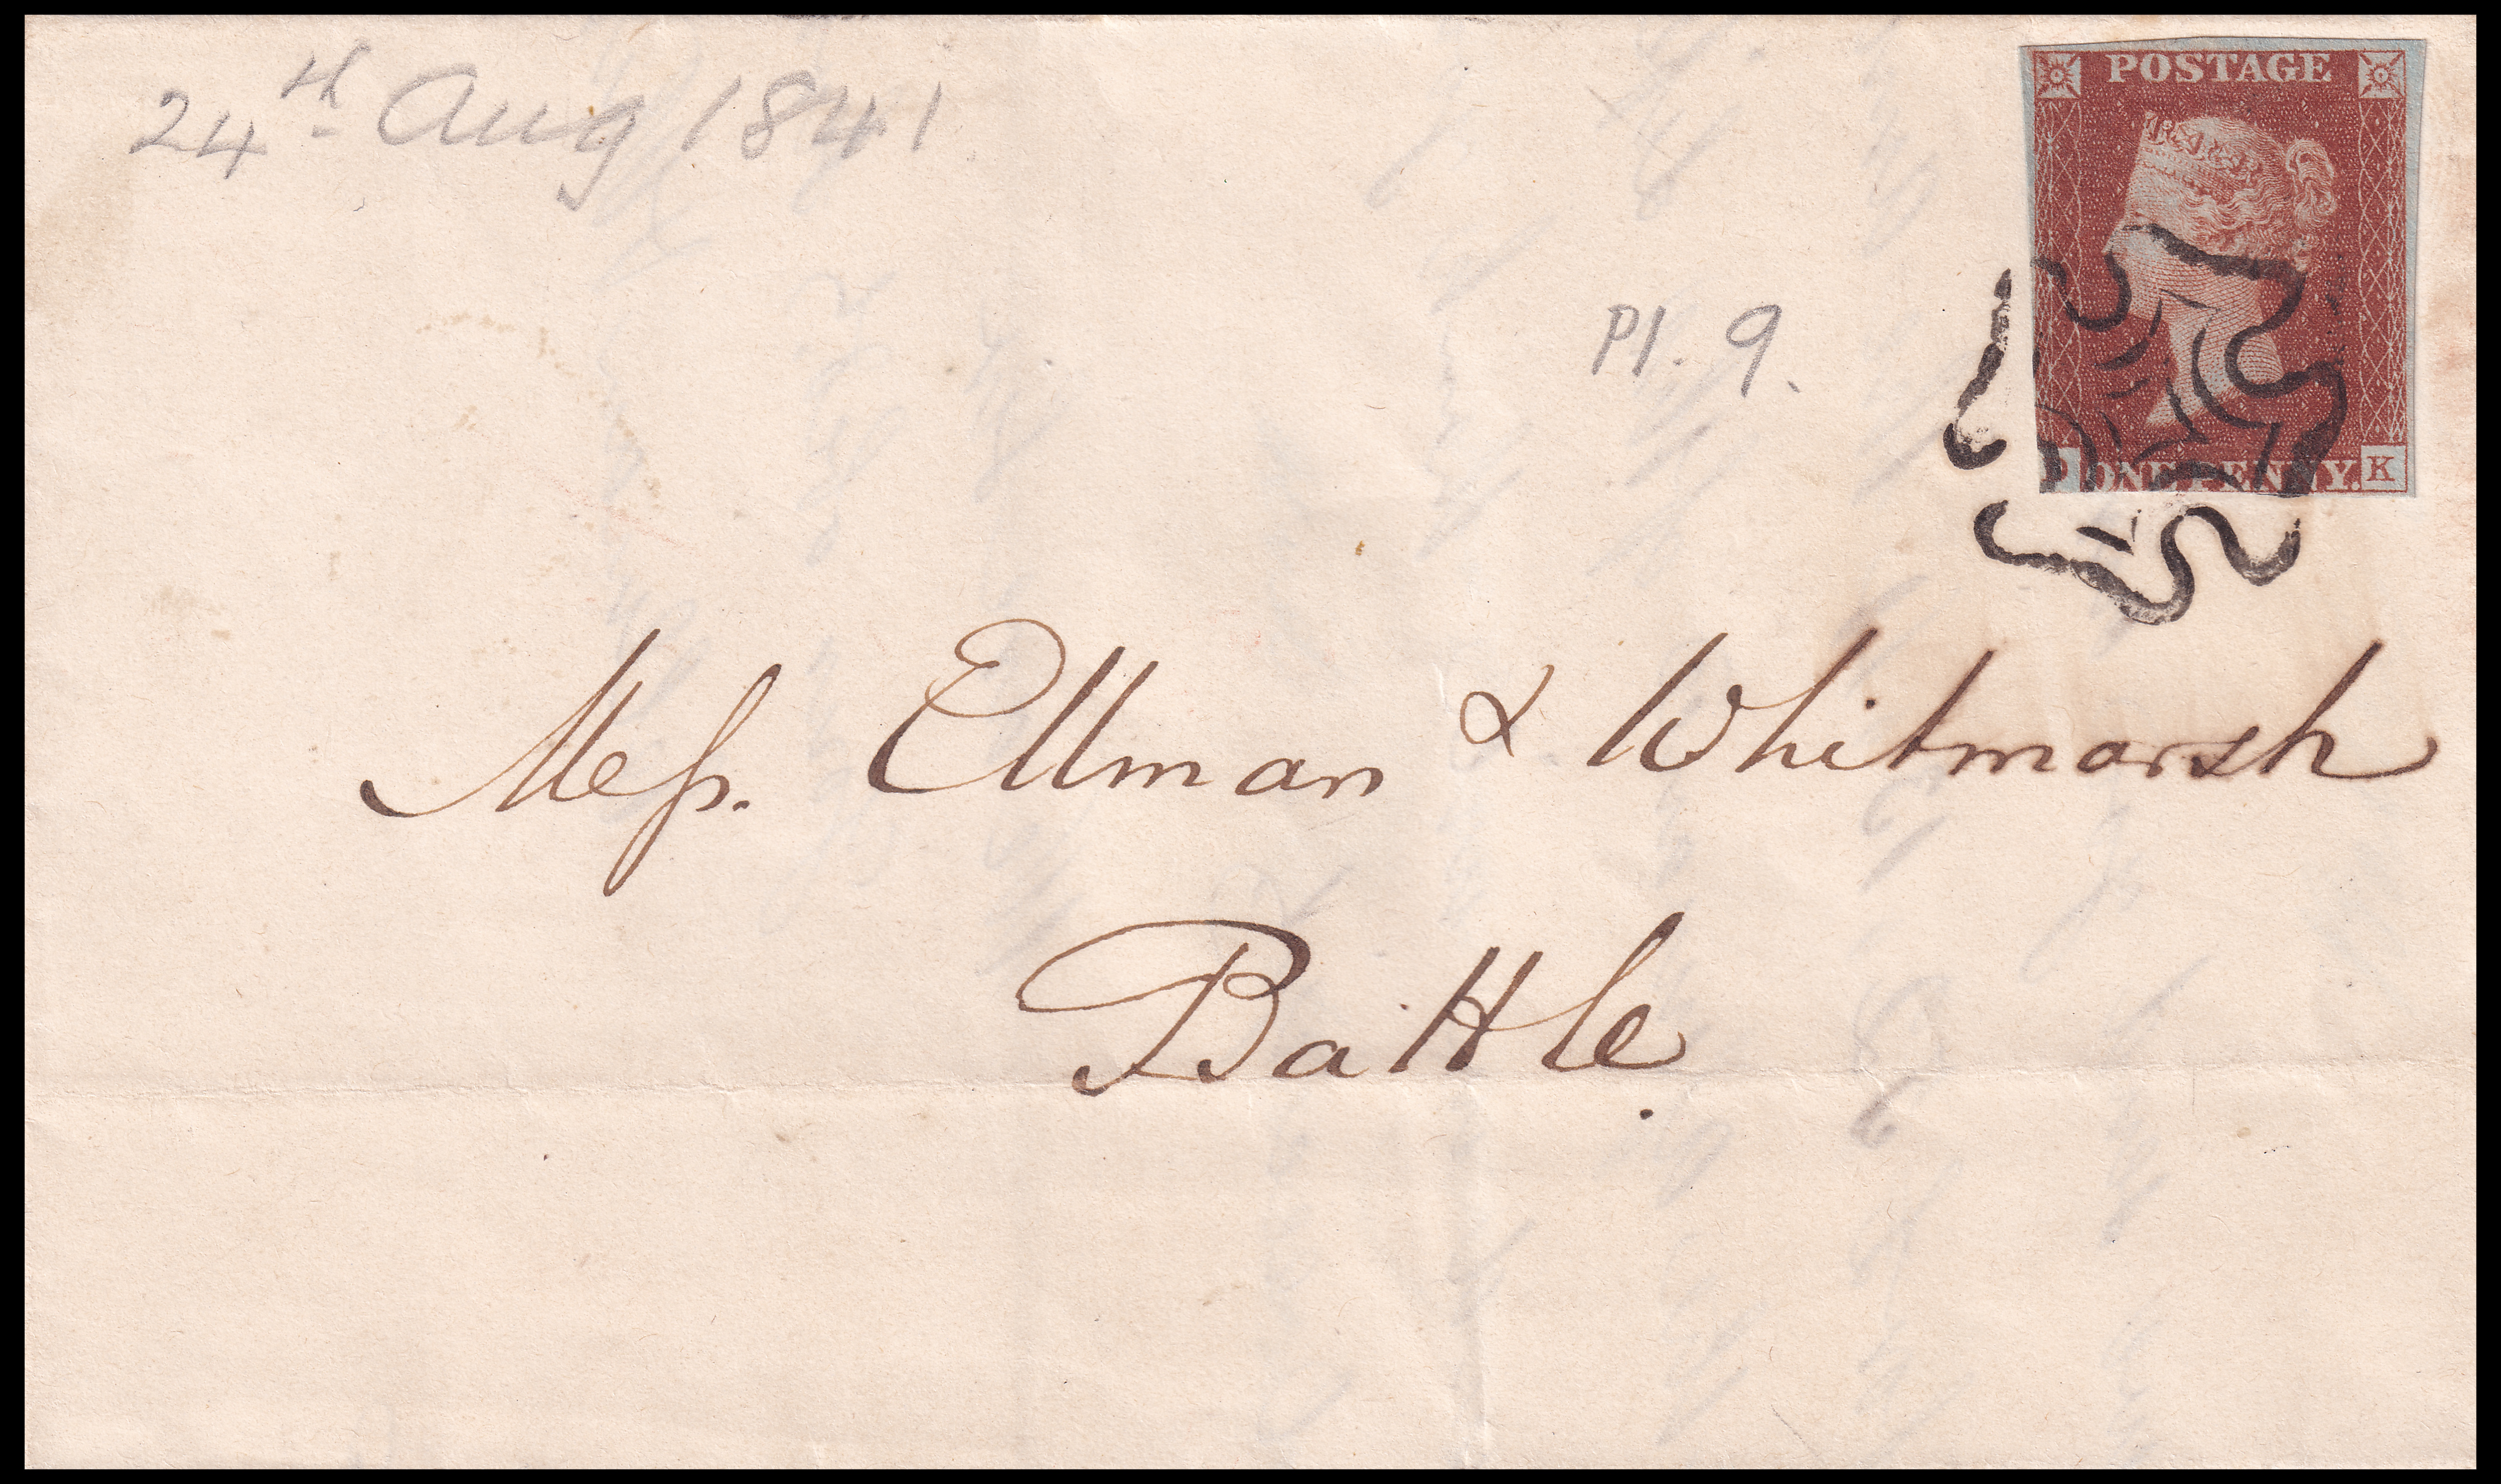 24th Aug 1841
POSTAGE
Pl. 9.
ONE PENNY.
K
Messs. Ellman & Whitmarsh
Battle